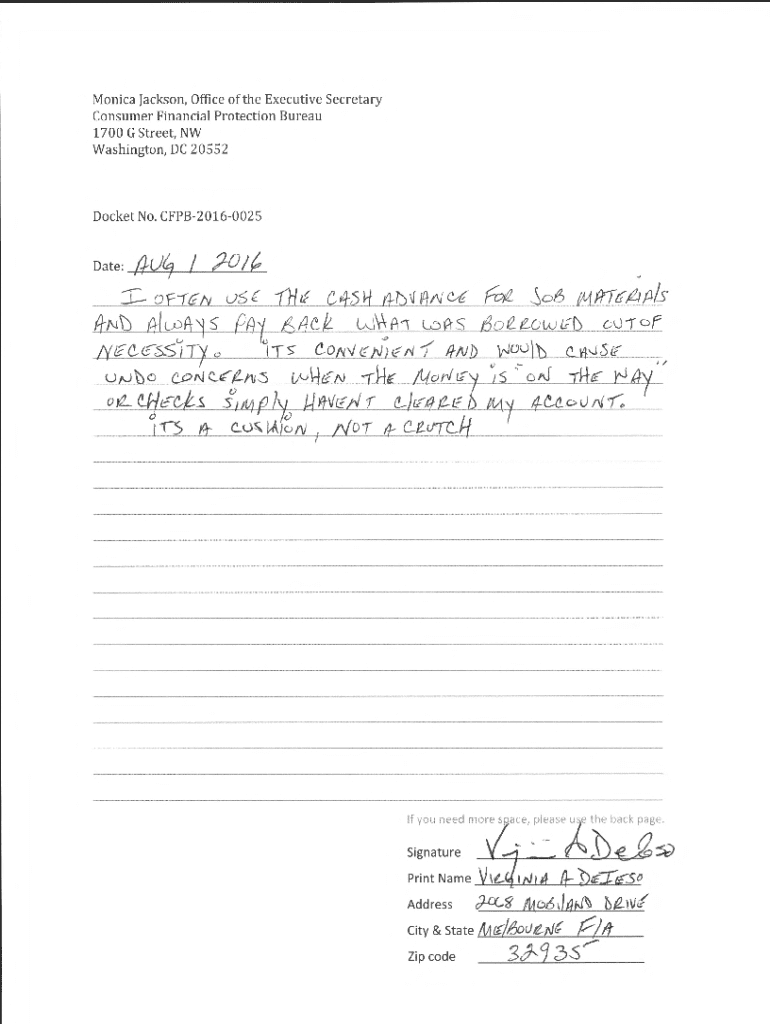 Monica Jackson, Office of the Executive Secretary
Consumer Financial Protection Bureau
1700 G Street, NW
Washington, DC 20552
Docket No. CFPB-2016-0025
Date: AUG 1 2016
I OFTEN USE THE CASH ADVANCE FOR JOB MATERIALS
AND ALWAYS PAY BACK WHAT WAS BORROWED OUT OF
NECESSITY. ITS CONVENIENT AND WOULD CAUSE
UNDO CONCERNS WHEN THE MONEY IS "ON THE WAY"
OR CHECKS SIMPLY HAVENT CLEARED MY ACCOUNT.
ITS A CUSHION, NOT A CRUTCH
If you need more space, please use the back page.
Signature
Print Name VIRGINIA A DEIESO
Address 2068 MOBILAND DRIVE
City & State MELBOURNE FLA
Zip code 32935